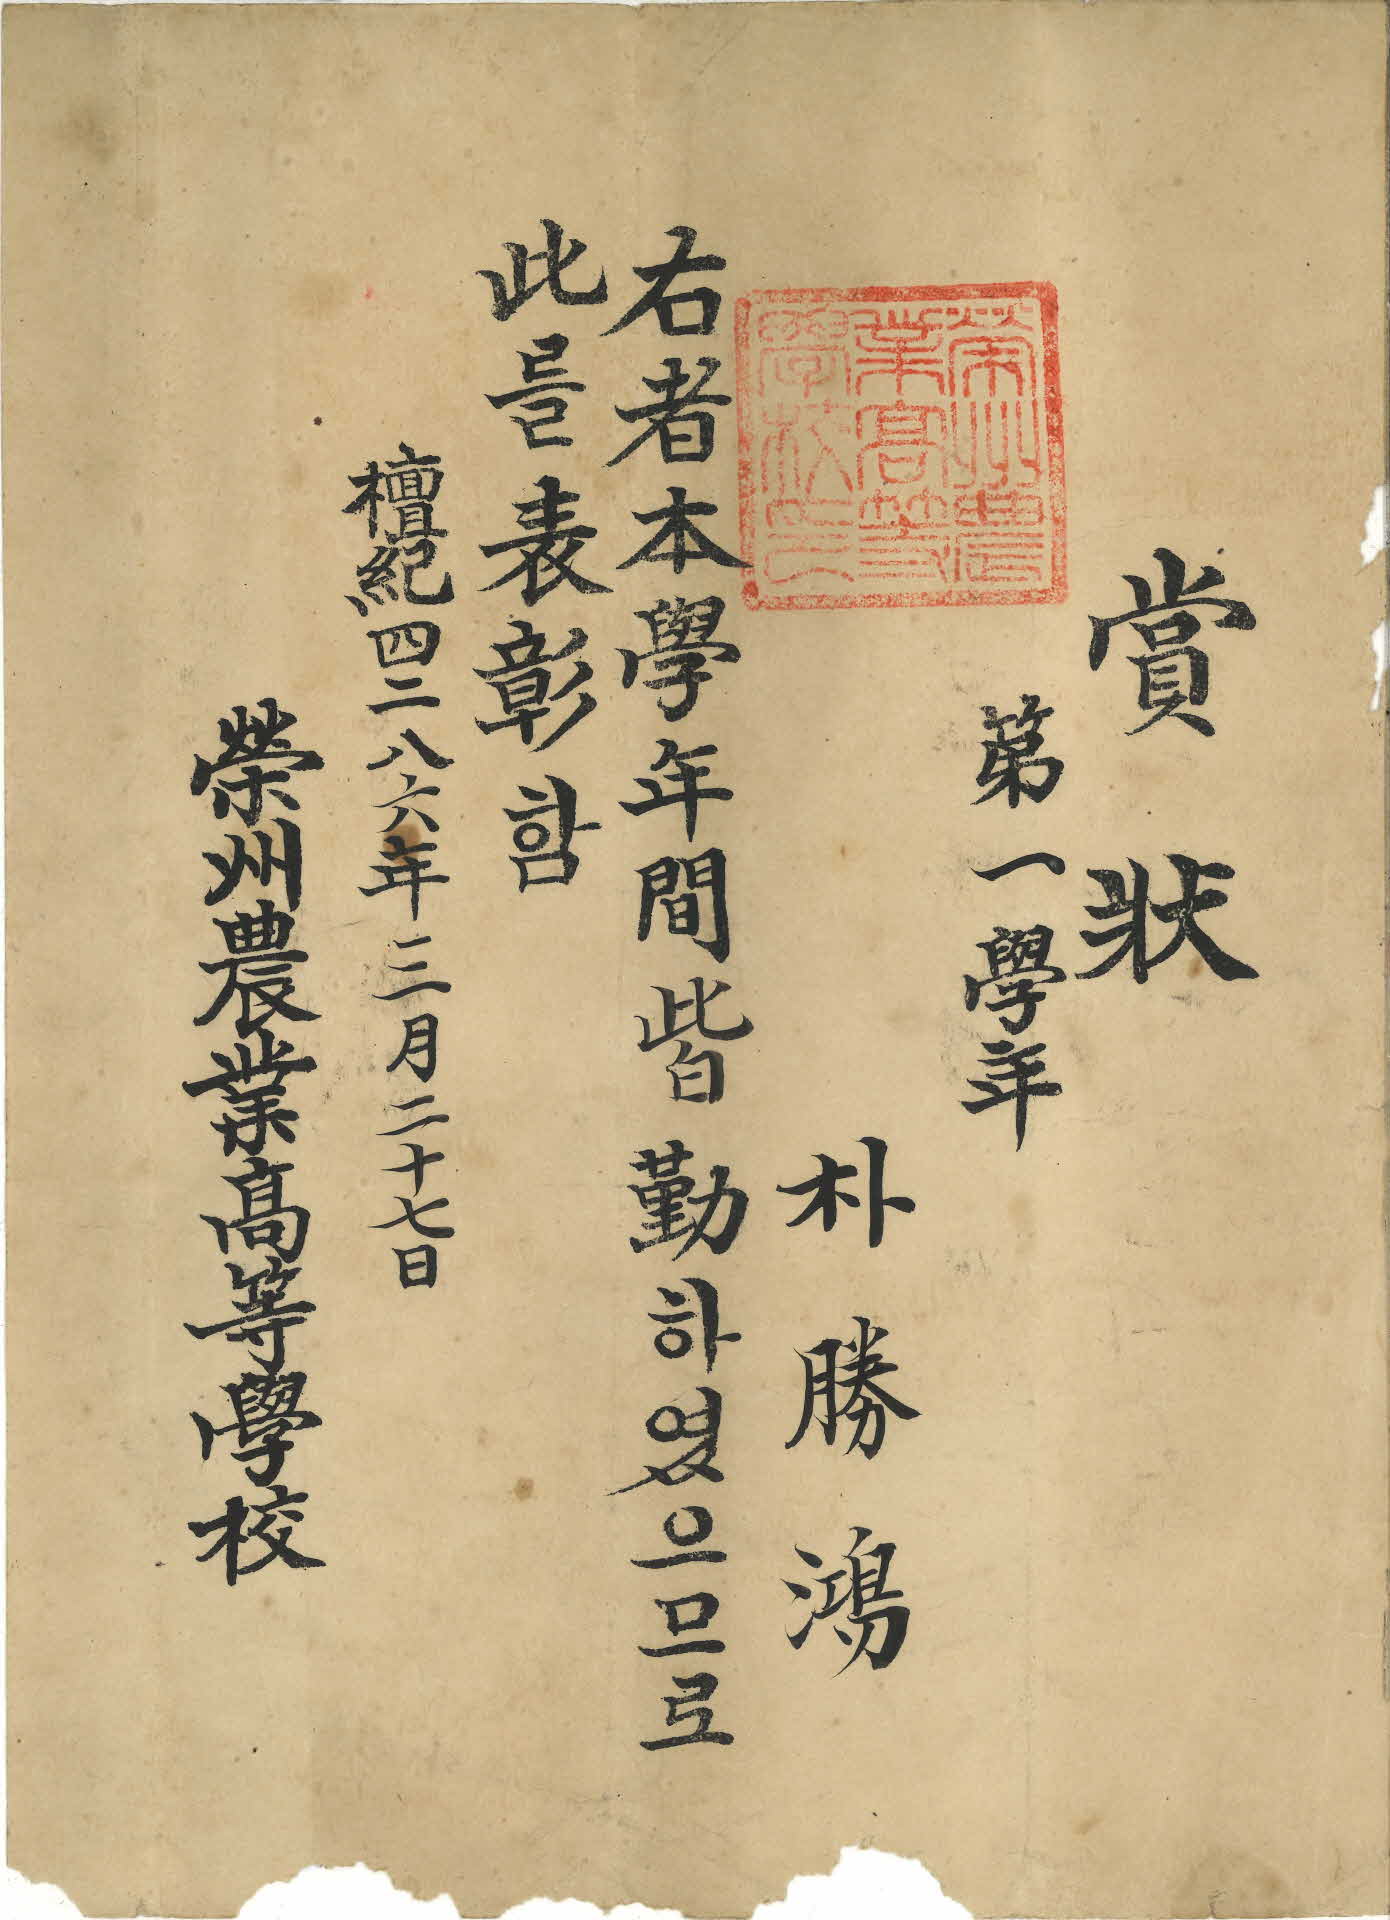 賞狀
第一學年
朴勝鴻
右者本學年間皆勤하였으므로
此를表彰함
檀紀四二八六年三月二十七日
榮州農業高等學校
榮州農業高等學校印